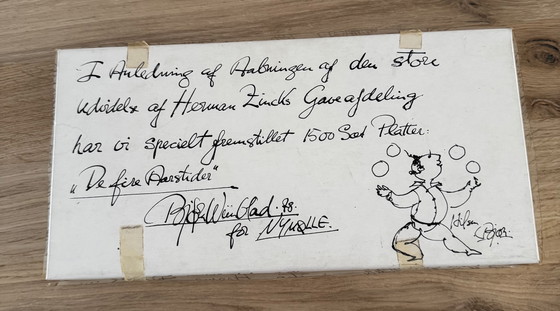 I Anledning af Aabningen af den store
udvidelse af Herman Zincks Gaveafdeling
har vi specielt fremstillet 1500 Sæt Platter:
"De fire Aarstider"
Bjørn Wiinblad
for NYMØLLE.
Hilsen
Bjørn